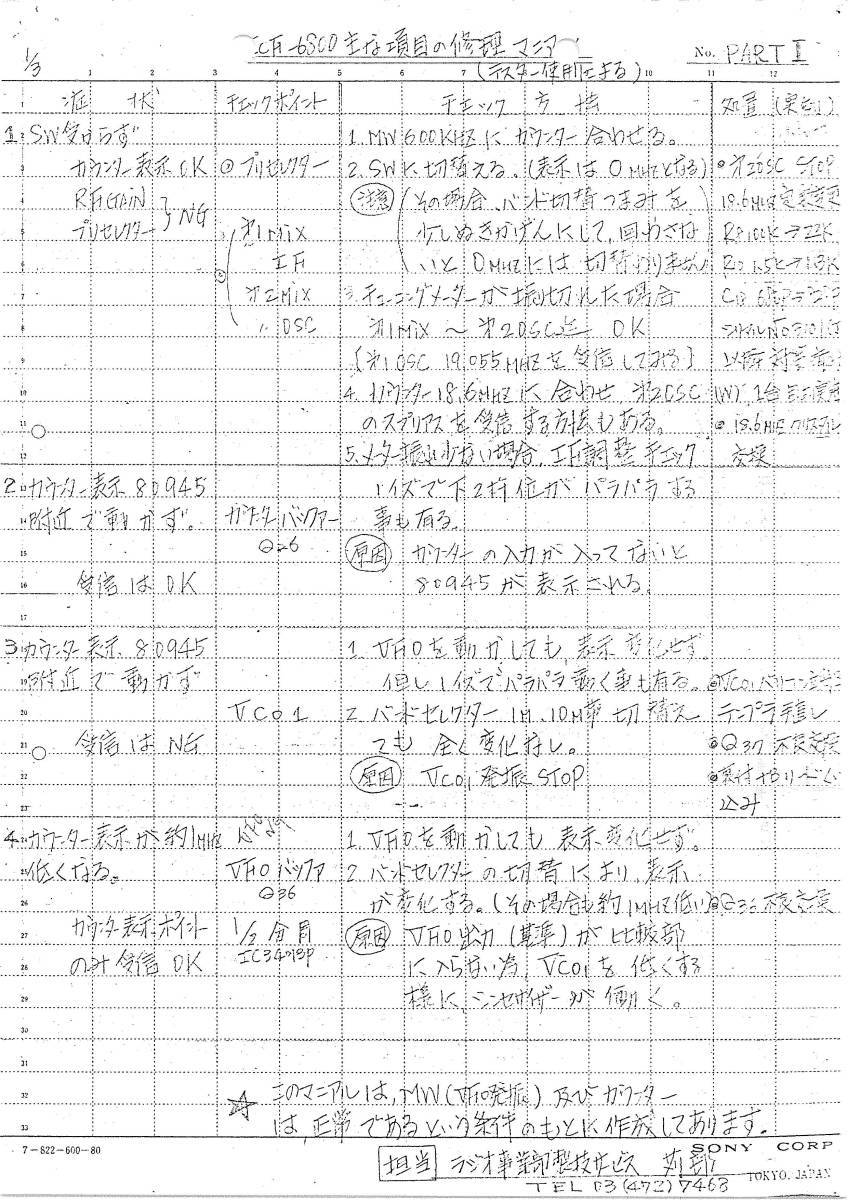 1/3
主な項目の修理マニア
(テスター使用による)
No. PART I
1 2 3 5 6 7 8 9 10 11 12
症 状 チェックポイント チェック 方 法 処置
1 SW受からず 1. MW 600KHzにカウンター合わせる。
カウンター表示 OK プリセレクター 2. SWに切替える。(表示は0MHzとなる) 第2OSC STOP
RF GAIN
プリセレクター } NG
注意 (その場合、バンド切替つまみを
少しぬきかげんにして、回わさな
いと 0MHzには切替わりません)
第1Mix
IF
第2Mix
〃 OSC
3. チューニングメーターが振切れた場合
第1Mix ～ 第2OSC迄 OK
(第1OSC 19.055MHzを受信してみる)
4. カウンター18.6MHzに合わせ 第2OSC
のスプリアスを受信する方法もある。
5. メーター振れ少ない場合、IF調整チェック
18.6MHz
交換
2 カウンター表示 80945 ノイズで下2桁位がパラパラする
附近で動かず。 カウンターバッファー 事も有る。
Q26
受信は OK
原因 カウンターの入力が入ってないと
80945が表示される。
3 カウンター表示 80945 1. VFOを動かしても、表示変化せず。
附近で動かず 但しノイズでパラパラ動く事も有る。
VCO1 2. バンドセレクター 1M、10M 切替え
受信は NG ても 全く変化なし。 Q37 不良交換
原因 VCO1 発振 STOP
4 カウンター表示が約1MHz VFO NG 1. VFOを動かしても 表示変化せず。
低くなる。 VFOバッファ 2. バンドセレクターの切替により、表示
Q36 が変化する。(その場合も約1MHz低い) Q36 不良交換
カウンター表示ポイント 1/2 分周 原因 VFO出力(基準)が比較部
のみ受信 OK に入らない為、VCO1を低くする
様に、シンセサイザーが働く。
☆ このマニアルは、MW(VFO発振)及びカウンター
は、正常であるという条件のもとに作成してあります。
7-822-600-80
SONY CORP
担当 ラジオ事業部 サービス
TOKYO, JAPAN
TEL 03(472)7463